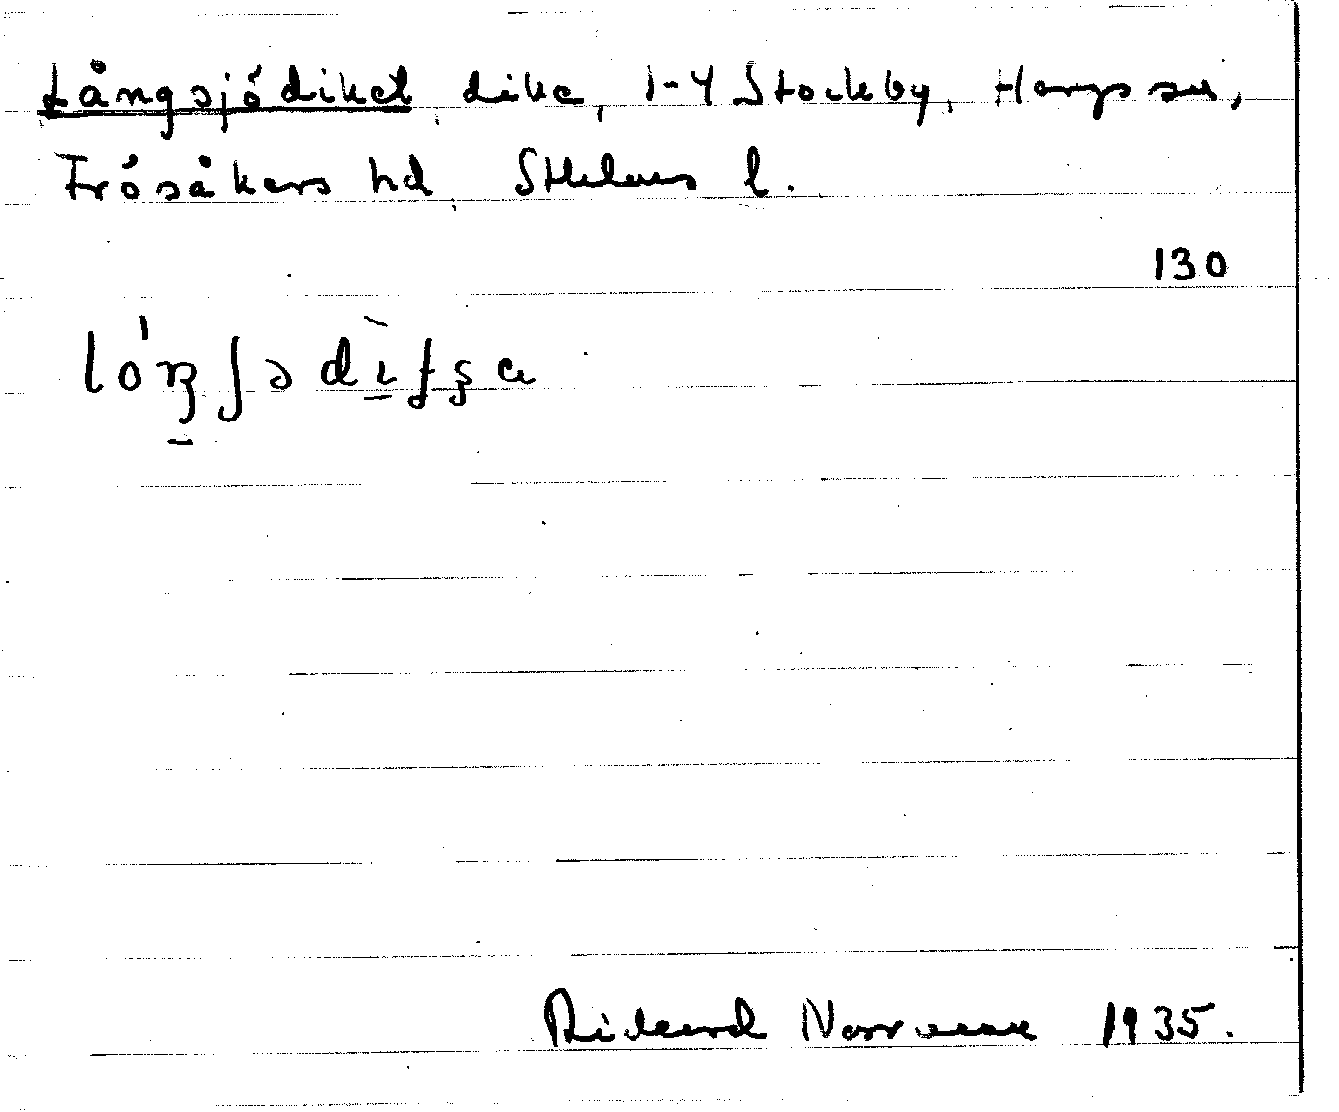 Långsjödiket, dike, 1-4 Stockby, Hargs sn,
Frösåkers hd, Sthlms l.
130
Rikard Norrman 1935.